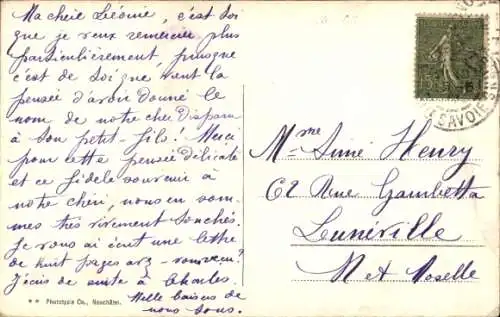 Ma chère Léonie, c'est toi
que je veux remercier plus
particulièrement, puisque
c'est de toi que vient la
pensée d'avoir donné le
nom de notre cher Disparu
à son petit-fils! Merci
pour cette pensée délicate
et ce fidèle souvenir à
notre chéri, nous en som-
mes très vivement touchés.
Je vous ai écrit une lettre
de huit pages
J'écris de suite à Charles.
Mille baisers de
nous tous.
** Phototypie Co., Neuchâtel.
SAVOIE
Mme Aimé Henry
62 Rue Gambetta
Lunéville
Mt et Moselle